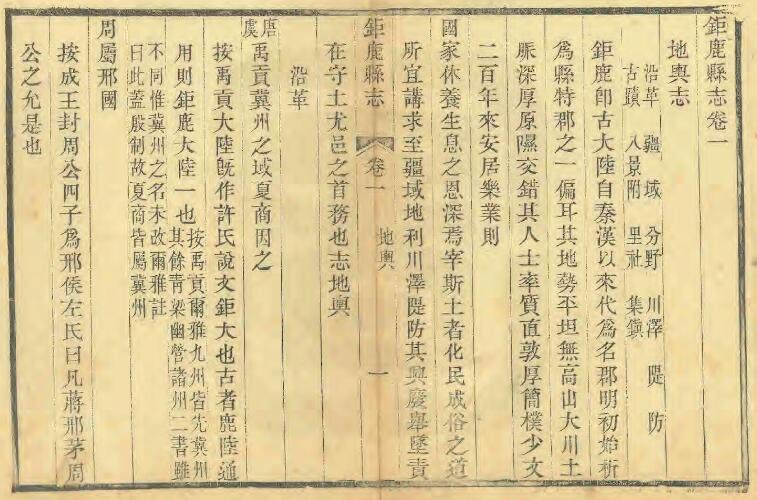 鉅鹿縣志卷一
地輿志
沿革 疆域 分野 川澤 隄防
古蹟 八景附 里社 集鎮
鉅鹿卽古大陸自秦漢以來代為名郡明初始析
為縣特郡之一偏耳其地勢平坦無高山大川土
脈深厚原隰交錯其人士率質直敦厚簡樸少文
二百年來安居樂業則
國家休養生息之恩深焉宰斯土者化民成俗之道
所宜講求至疆域地利川澤隄防其興廢舉墜責
鉅鹿縣志
卷一
地輿
一
在守土尤邑之首務也志地輿
沿革
唐虞
禹貢冀州之域夏商因之
按禹貢大陸旣作許氏說文鉅大也古者鹿陸通
用則鉅鹿大陸一也
按禹貢爾雅九州皆先冀州
其餘青梁幽營諸州二書雖
不同惟冀州之名未改爾雅註
曰此蓋殷制故夏商皆屬冀州
周屬邢國
按成王封周公四子為邢侯左氏曰凡蔣邢茅周
公之允是也